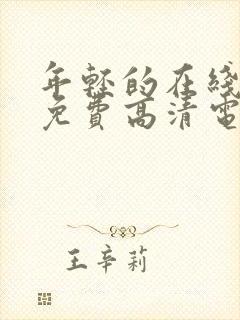 年轻的在线
免費高清電
王辛莉